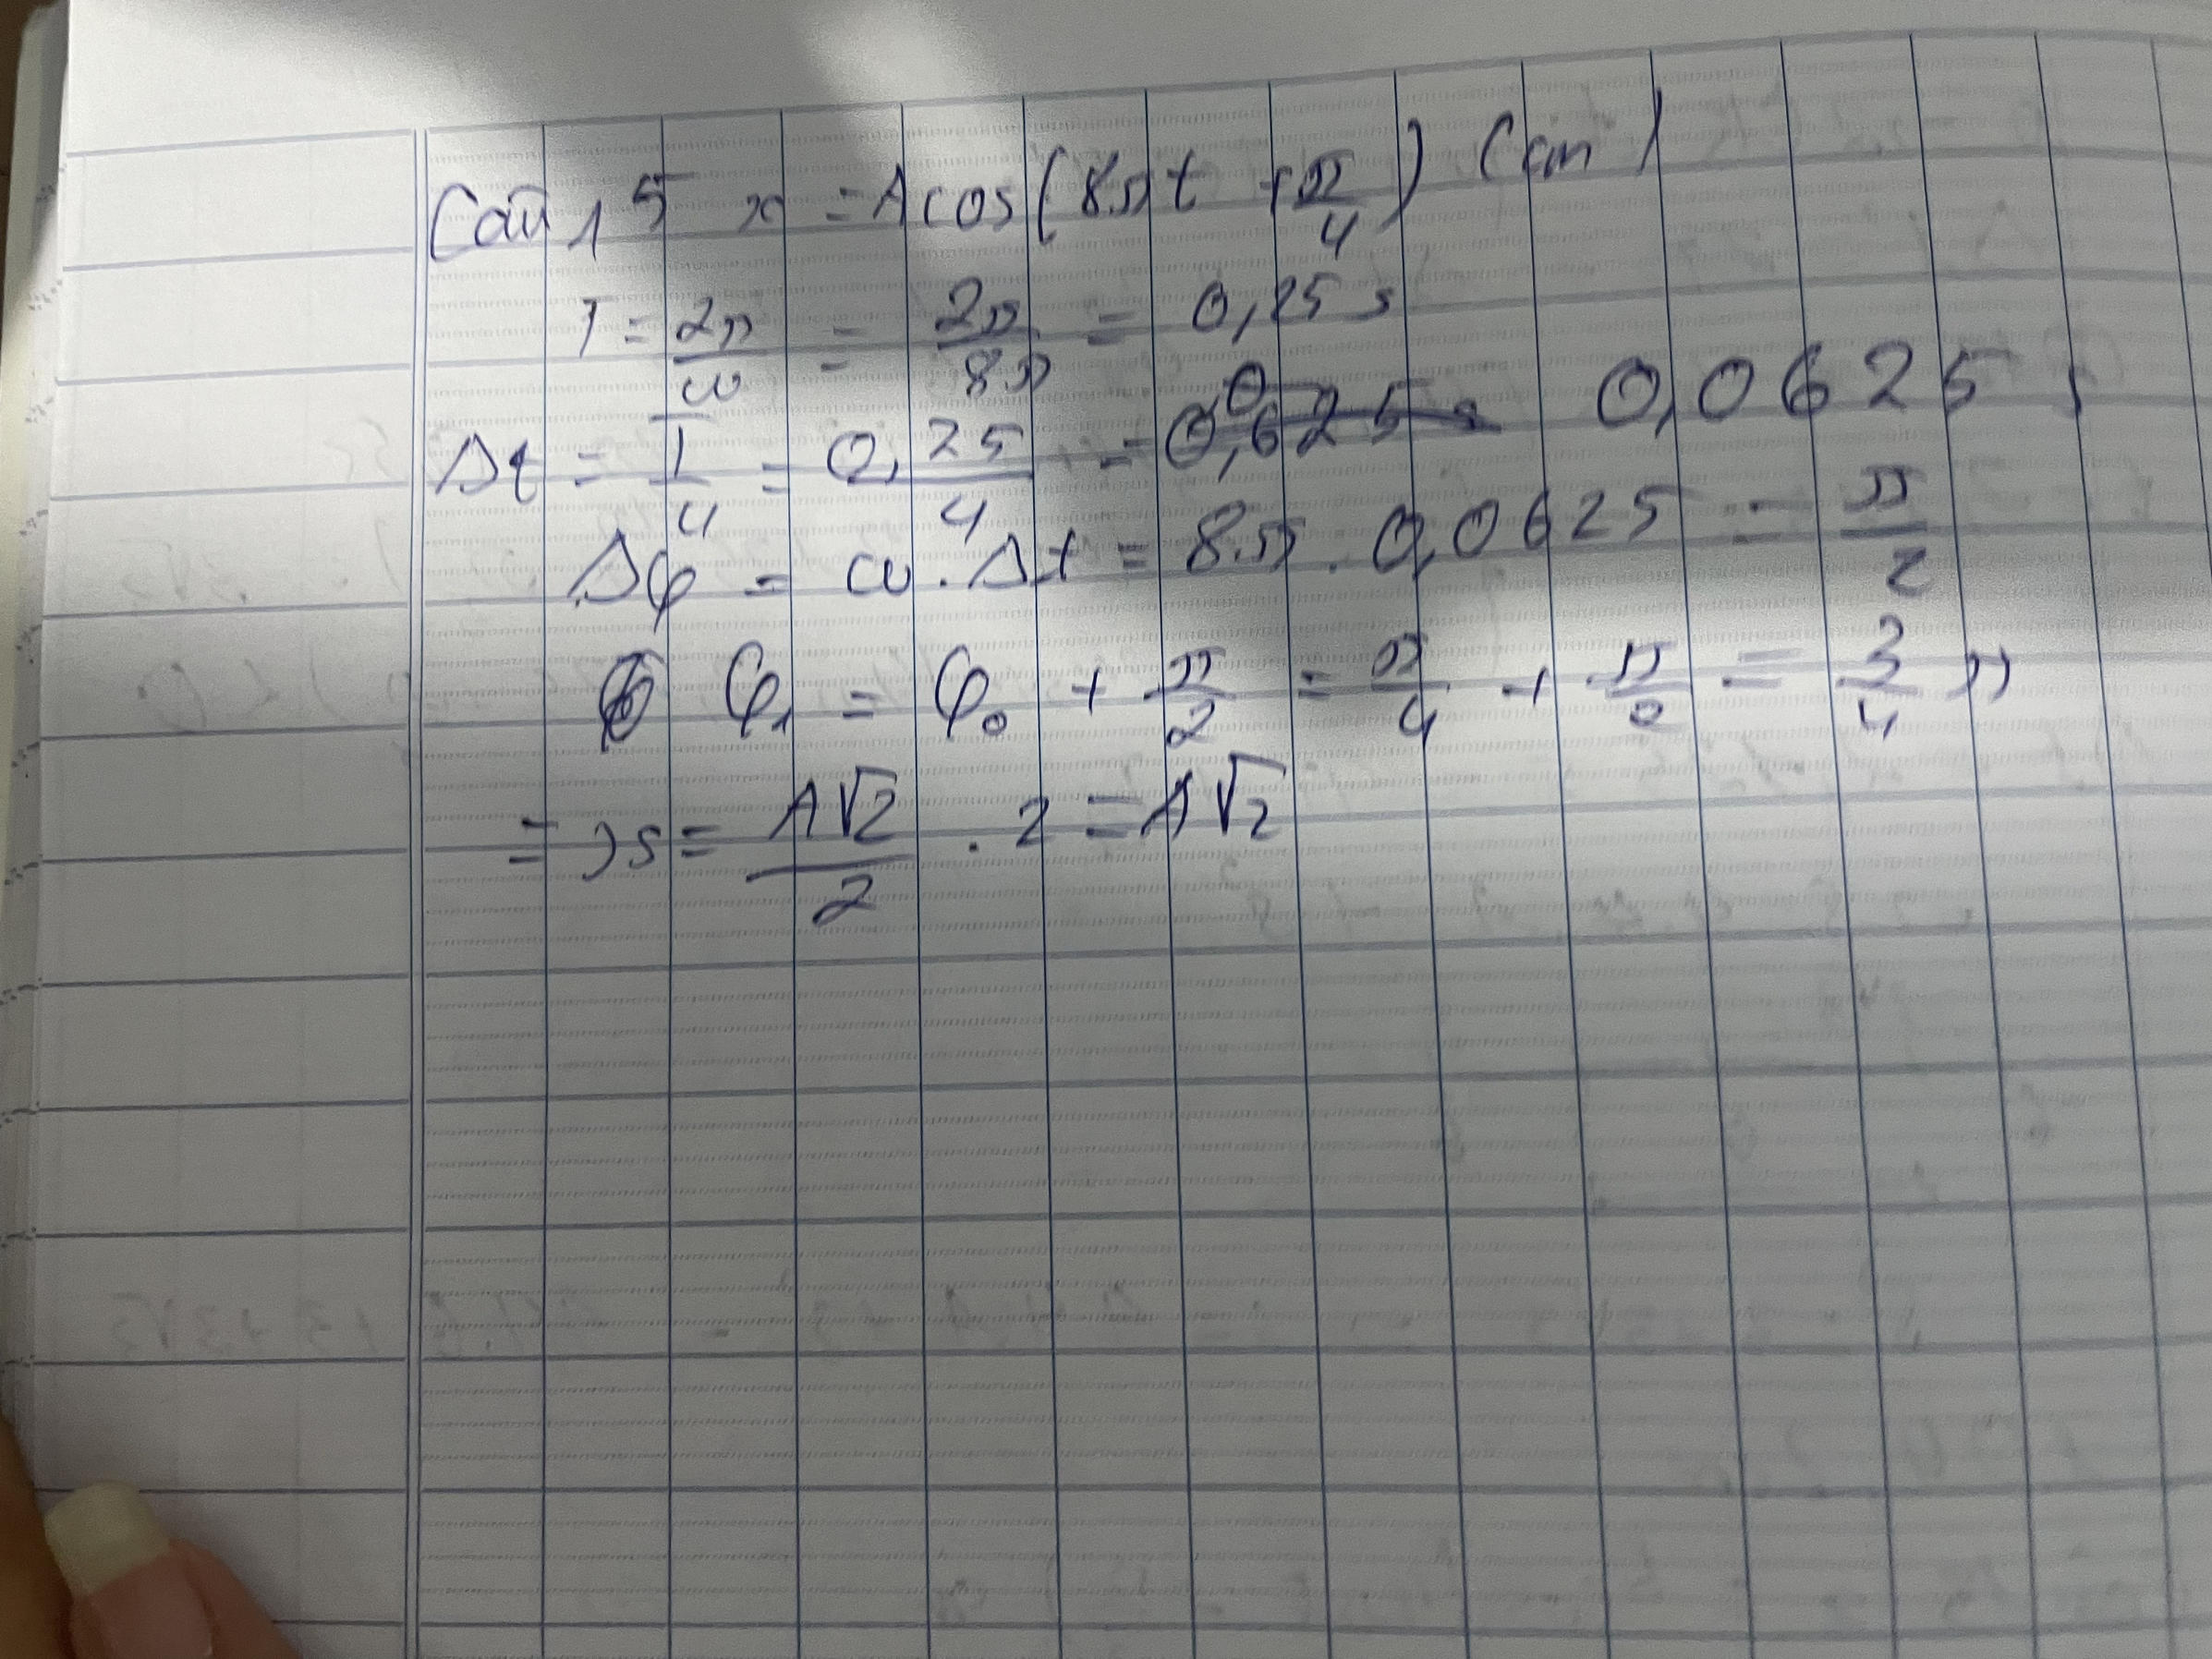 Câu 15 x = A cos(8πt + π/4) (cm)
T = 2π/ω = 2π/8π = 0,25 s
Δt = T/4 = 0,25/4 = 0,0625 s
Δφ = ω . Δt = 8π . 0,0625 = π/2
φ₁ = φ₀ + π/2 = π/4 + π/2 = 3/4 π
=> s = A√2/2 . 2 = A√2